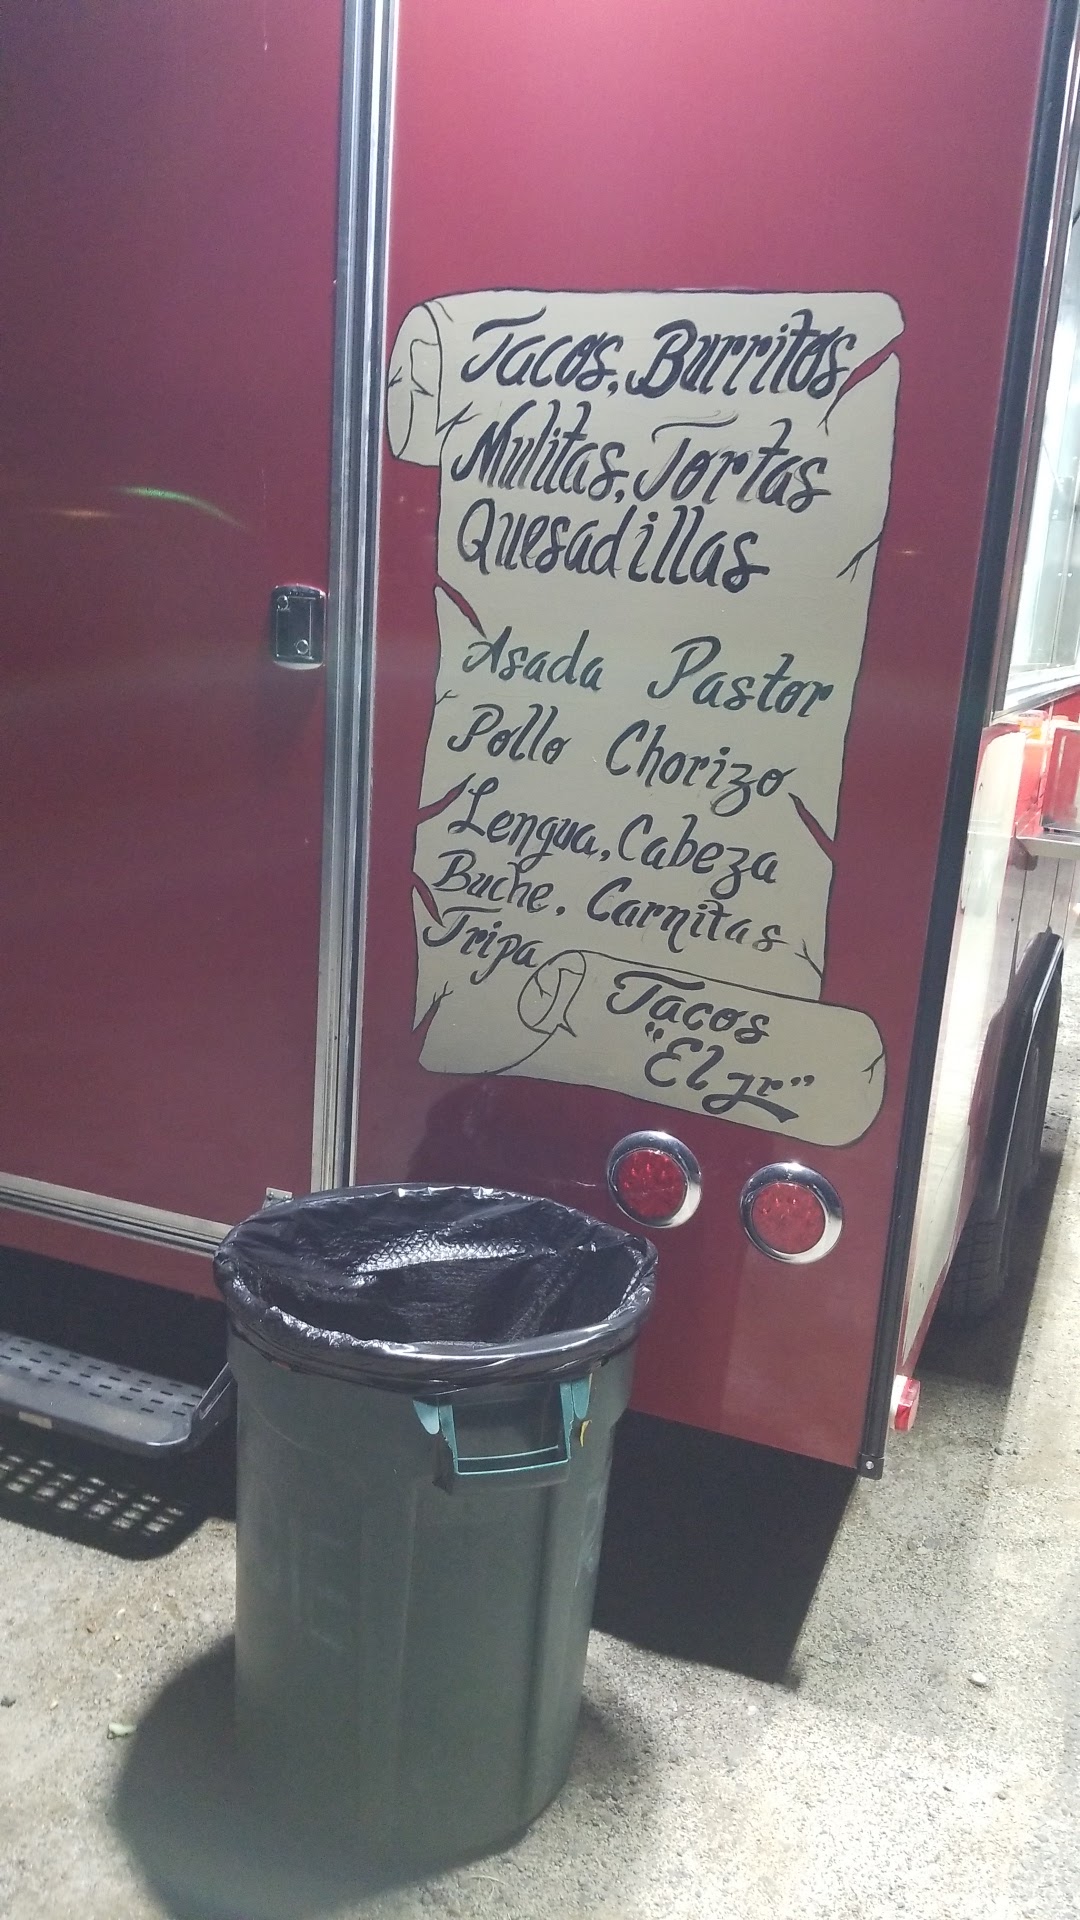 Tacos, Burritos
Mulitas, Tortas
Quesadillas
Asada Pastor
Pollo Chorizo
Lengua, Cabeza
Buche, Carnitas
Tripa
Tacos
"El jr"